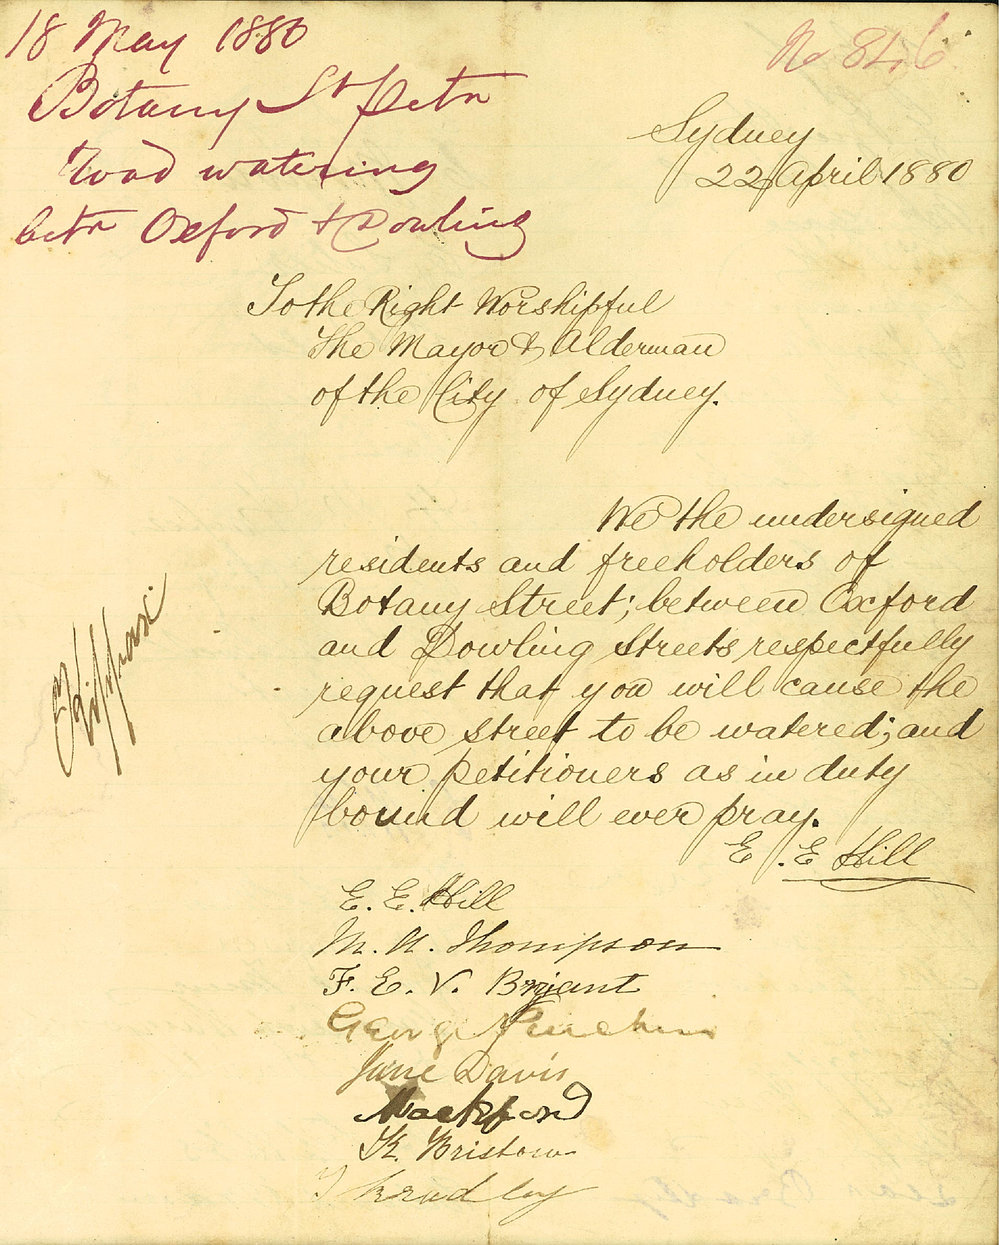 18 May 1880
Botany St Petn
road watering
betn Oxford & Dowling
No 846
Sydney
22 April 1880
To the Right Worshipful
The Mayor & Alderman
of the City of Sydney.
We the undersigned
residents and freeholders of
Botany Street; between Oxford
and Dowling Streets respectfully
request that you will cause the
above street to be watered; and
your petitioners as in duty
bound will ever pray.
E. E Hill
E. E. Hill
M. A. Thompson
F. E. V. Bryant
George
Jane Davis
K. Bristow